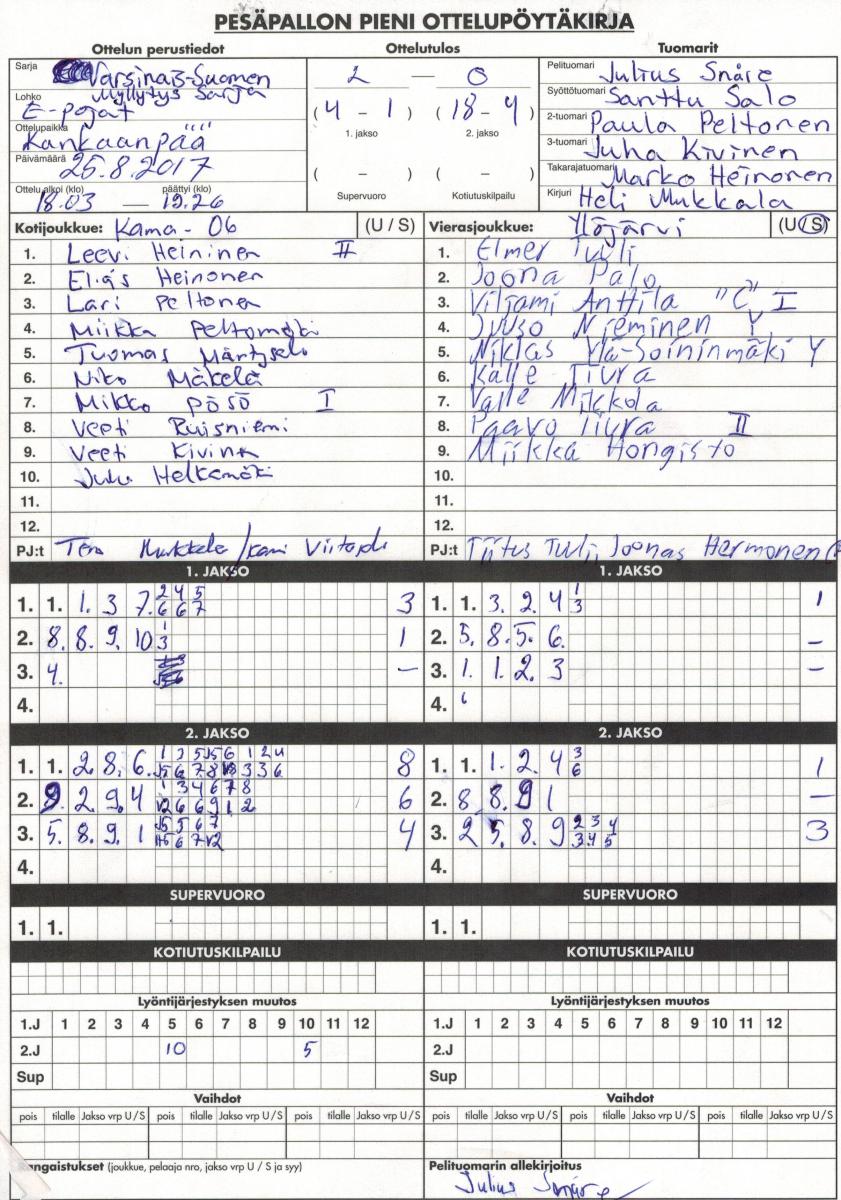 PESÄPALLON PIENI OTTELUPÖYTÄKIRJA
Ottelun perustiedot Ottelutulos Tuomarit
Sarja Varsinais-Suomen
Myllytys Sarja
Lohko E-pojat
Ottelupaikka Kankaanpää
Päivämäärä 25.8.2017
Ottelu alkoi (klo) päättyi (klo)
18.03 — 19.26
2 — 0
(4 - 1) (18 - 4)
1. jakso 2. jakso
( - ) ( - )
Supervuoro Kotiutuskilpailu
Pelituomari Julius Snåre
Syöttötuomari Santtu Salo
2-tuomari Paula Peltonen
3-tuomari Juha Kivinen
Takarajatuomari Marko Heinonen
Kirjuri Heli Mukkala
Kotijoukkue: Kama-06 (U / S)
1. Leevi Heininen II
2. Elias Heinonen
3. Lari Peltonen
4. Miikka Peltomäki
5. Tuomas Mäntysalo
6. Niko Mäkelä
7. Mikko Pösö I
8. Veeti Ruisniemi
9. Veeti Kivinen
10. Juhu Helkamäki
11.
12.
PJ:t Tero Mukkala / Kami
Vierasjoukkue: Ylöjärvi (U / S)
1. Elmer Tuuli
2. Joona Palo
3. Viljami Anttila "C" I
4. Juuso Nieminen Y
5. Niklas Ylä-Soininmäki Y
6. Kalle Tiura
7. Valle Mikkola
8. Paavo Tiura II
9. Miikka Hongisto
10.
11.
12.
PJ:t Tiitus Tuuli Joonas Hermonen
1. JAKSO
1. 1. 1. 3 7. 2 4 5 3
6 6 7
2. 8. 8. 9. 10 1 1
3
3. 4. –
4.
1. JAKSO
1. 1. 3. 2. 4 1 1
3
2. 5. 8. 5. 6. –
3. 1. 1. 2. 3 –
4.
2. JAKSO
1. 1. 2 8. 6. 8
2. 9. 2. 9. 4 1 3 4 6 7 8 6
3. 5. 8. 9. 1 4
4.
2. JAKSO
1. 1. 1. 2 4 3 1
6
2. 8 8. 9 1 –
3. 2 5. 8. 9 2 3 4 3
3 4 5
4.
SUPERVUORO SUPERVUORO
1. 1. 1. 1.
KOTIUTUSKILPAILU KOTIUTUSKILPAILU
Lyöntijärjestyksen muutos Lyöntijärjestyksen muutos
1.J 1 2 3 4 5 6 7 8 9 10 11 12 1.J 1 2 3 4 5 6 7 8 9 10 11 12
2.J 10 5 2.J
Sup Sup
Vaihdot Vaihdot
pois tilalle Jakso vrp U/S pois tilalle Jakso vrp U/S pois tilalle Jakso vrp U/S pois tilalle Jakso vrp U/S
pois tilalle Jakso vrp U/S pois tilalle Jakso vrp U/S
Rangaistukset (joukkue, pelaaja nro, jakso vrp U / S ja syy) Pelituomarin allekirjoitus
Julius Snåre